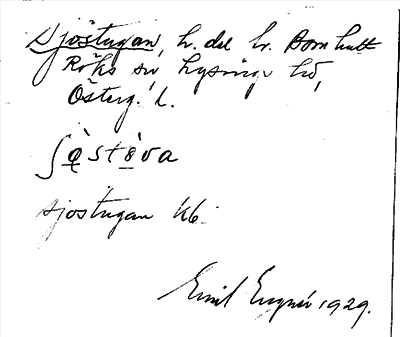 Sjöstugan, h. del hr. Bornhult
Röks sn, Lysings hd,
Österg. l.
ʃö̀stò̱va
sjöstugan kb.
Emil 1929.